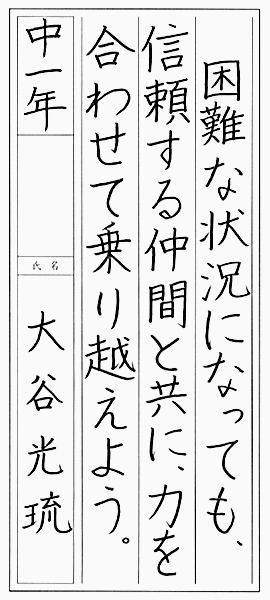 困難な状況になっても、
信頼する仲間と共に、力を
合わせて乗り越えよう。
中一年
氏名
大谷光琉